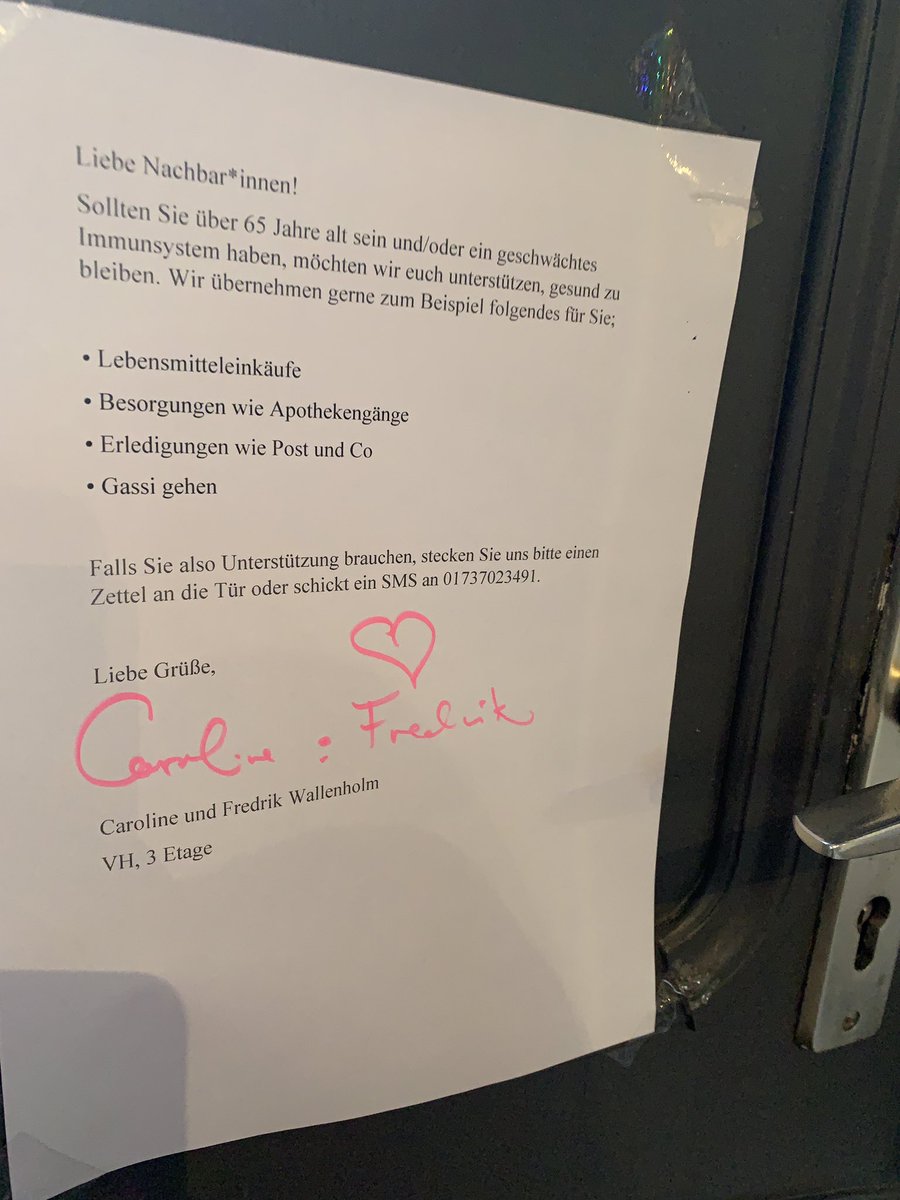 Liebe Nachbar*innen!
Sollten Sie über 65 Jahre alt sein und/oder ein geschwächtes
Immunsystem haben, möchten wir euch unterstützen, gesund zu
bleiben. Wir übernehmen gerne zum Beispiel folgendes für Sie;
• Lebensmitteleinkäufe
• Besorgungen wie Apothekengänge
• Erledigungen wie Post und Co
• Gassi gehen
Falls Sie also Unterstützung brauchen, stecken Sie uns bitte einen
Zettel an die Tür oder schickt ein SMS an 01737023491.
Liebe Grüße,
Caroline : Fredrik
Caroline und Fredrik Wallenholm
VH, 3 Etage